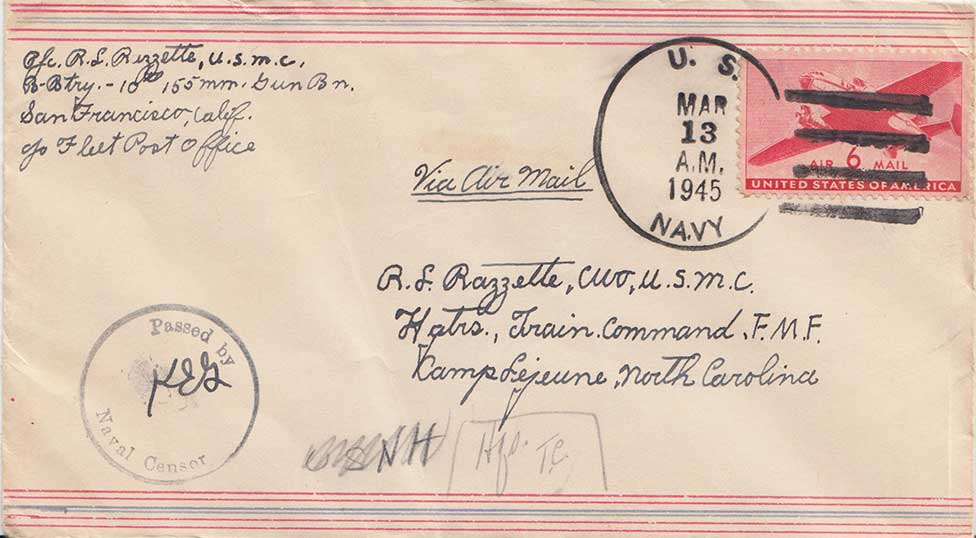 Pfc. R.L. Razzette, U.S.M.C.
B-Btry. - 10th 155mm. Gun Bn.
San Francisco, Calif.
c/o Fleet Post Office
U. S.
MAR
13
A.M.
1945
NAVY
AIR 6 MAIL
UNITED STATES OF AMERICA
Via Air Mail
R.L. Razzette, CWO, U.S.M.C.
Hqtrs., Train. Command, F.M.F.
Kamp Lejeune, North Carolina
Passed by
KEG
Naval Censor
NH
T.C.